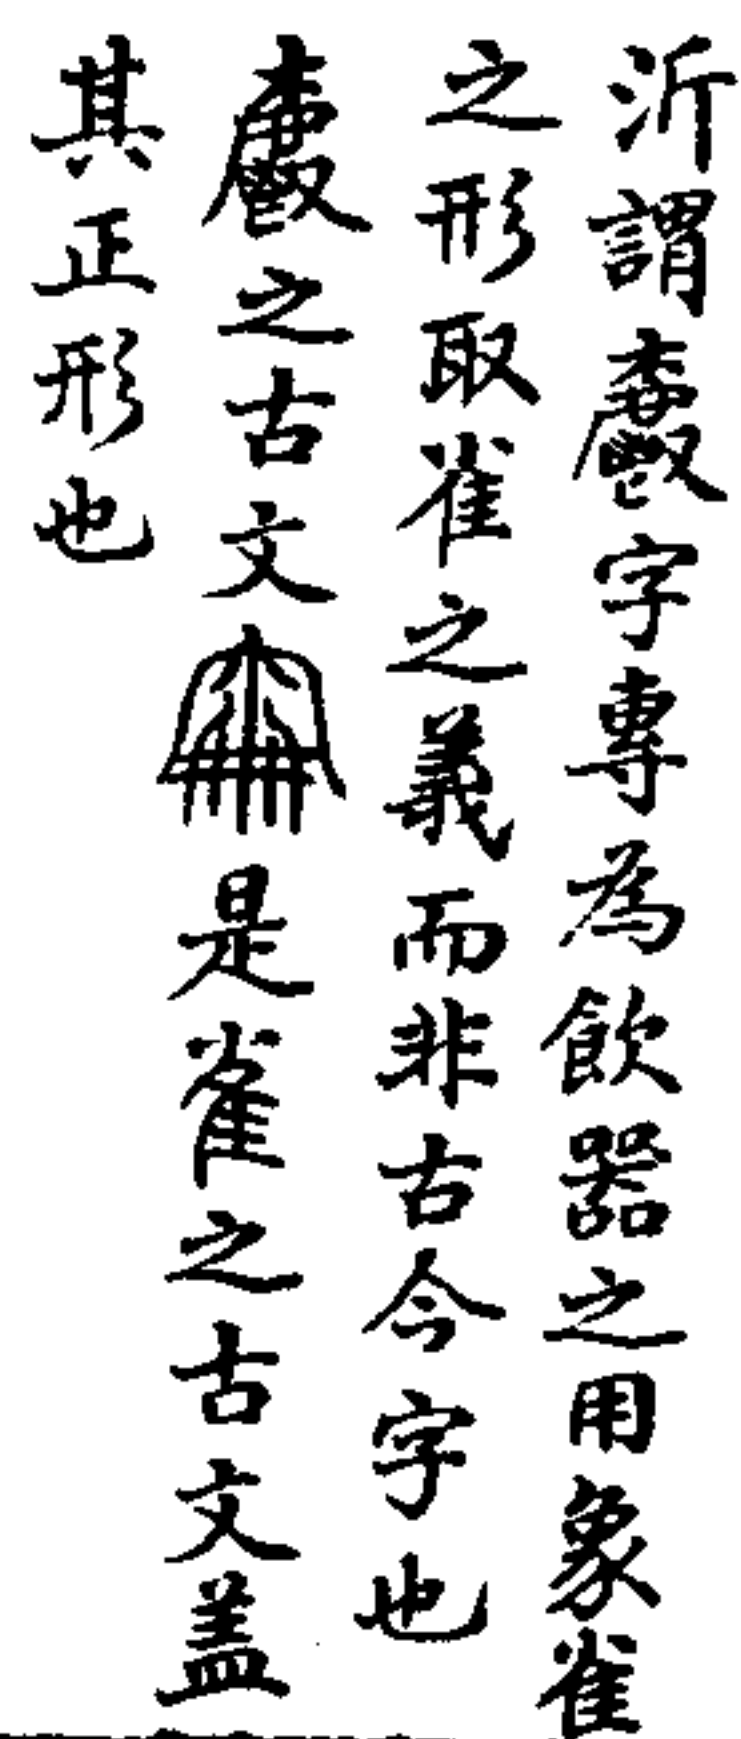 所謂字專為飲器之用象雀
之形取雀之義而非古今字也
之古文是雀之古文蓋
其正形也